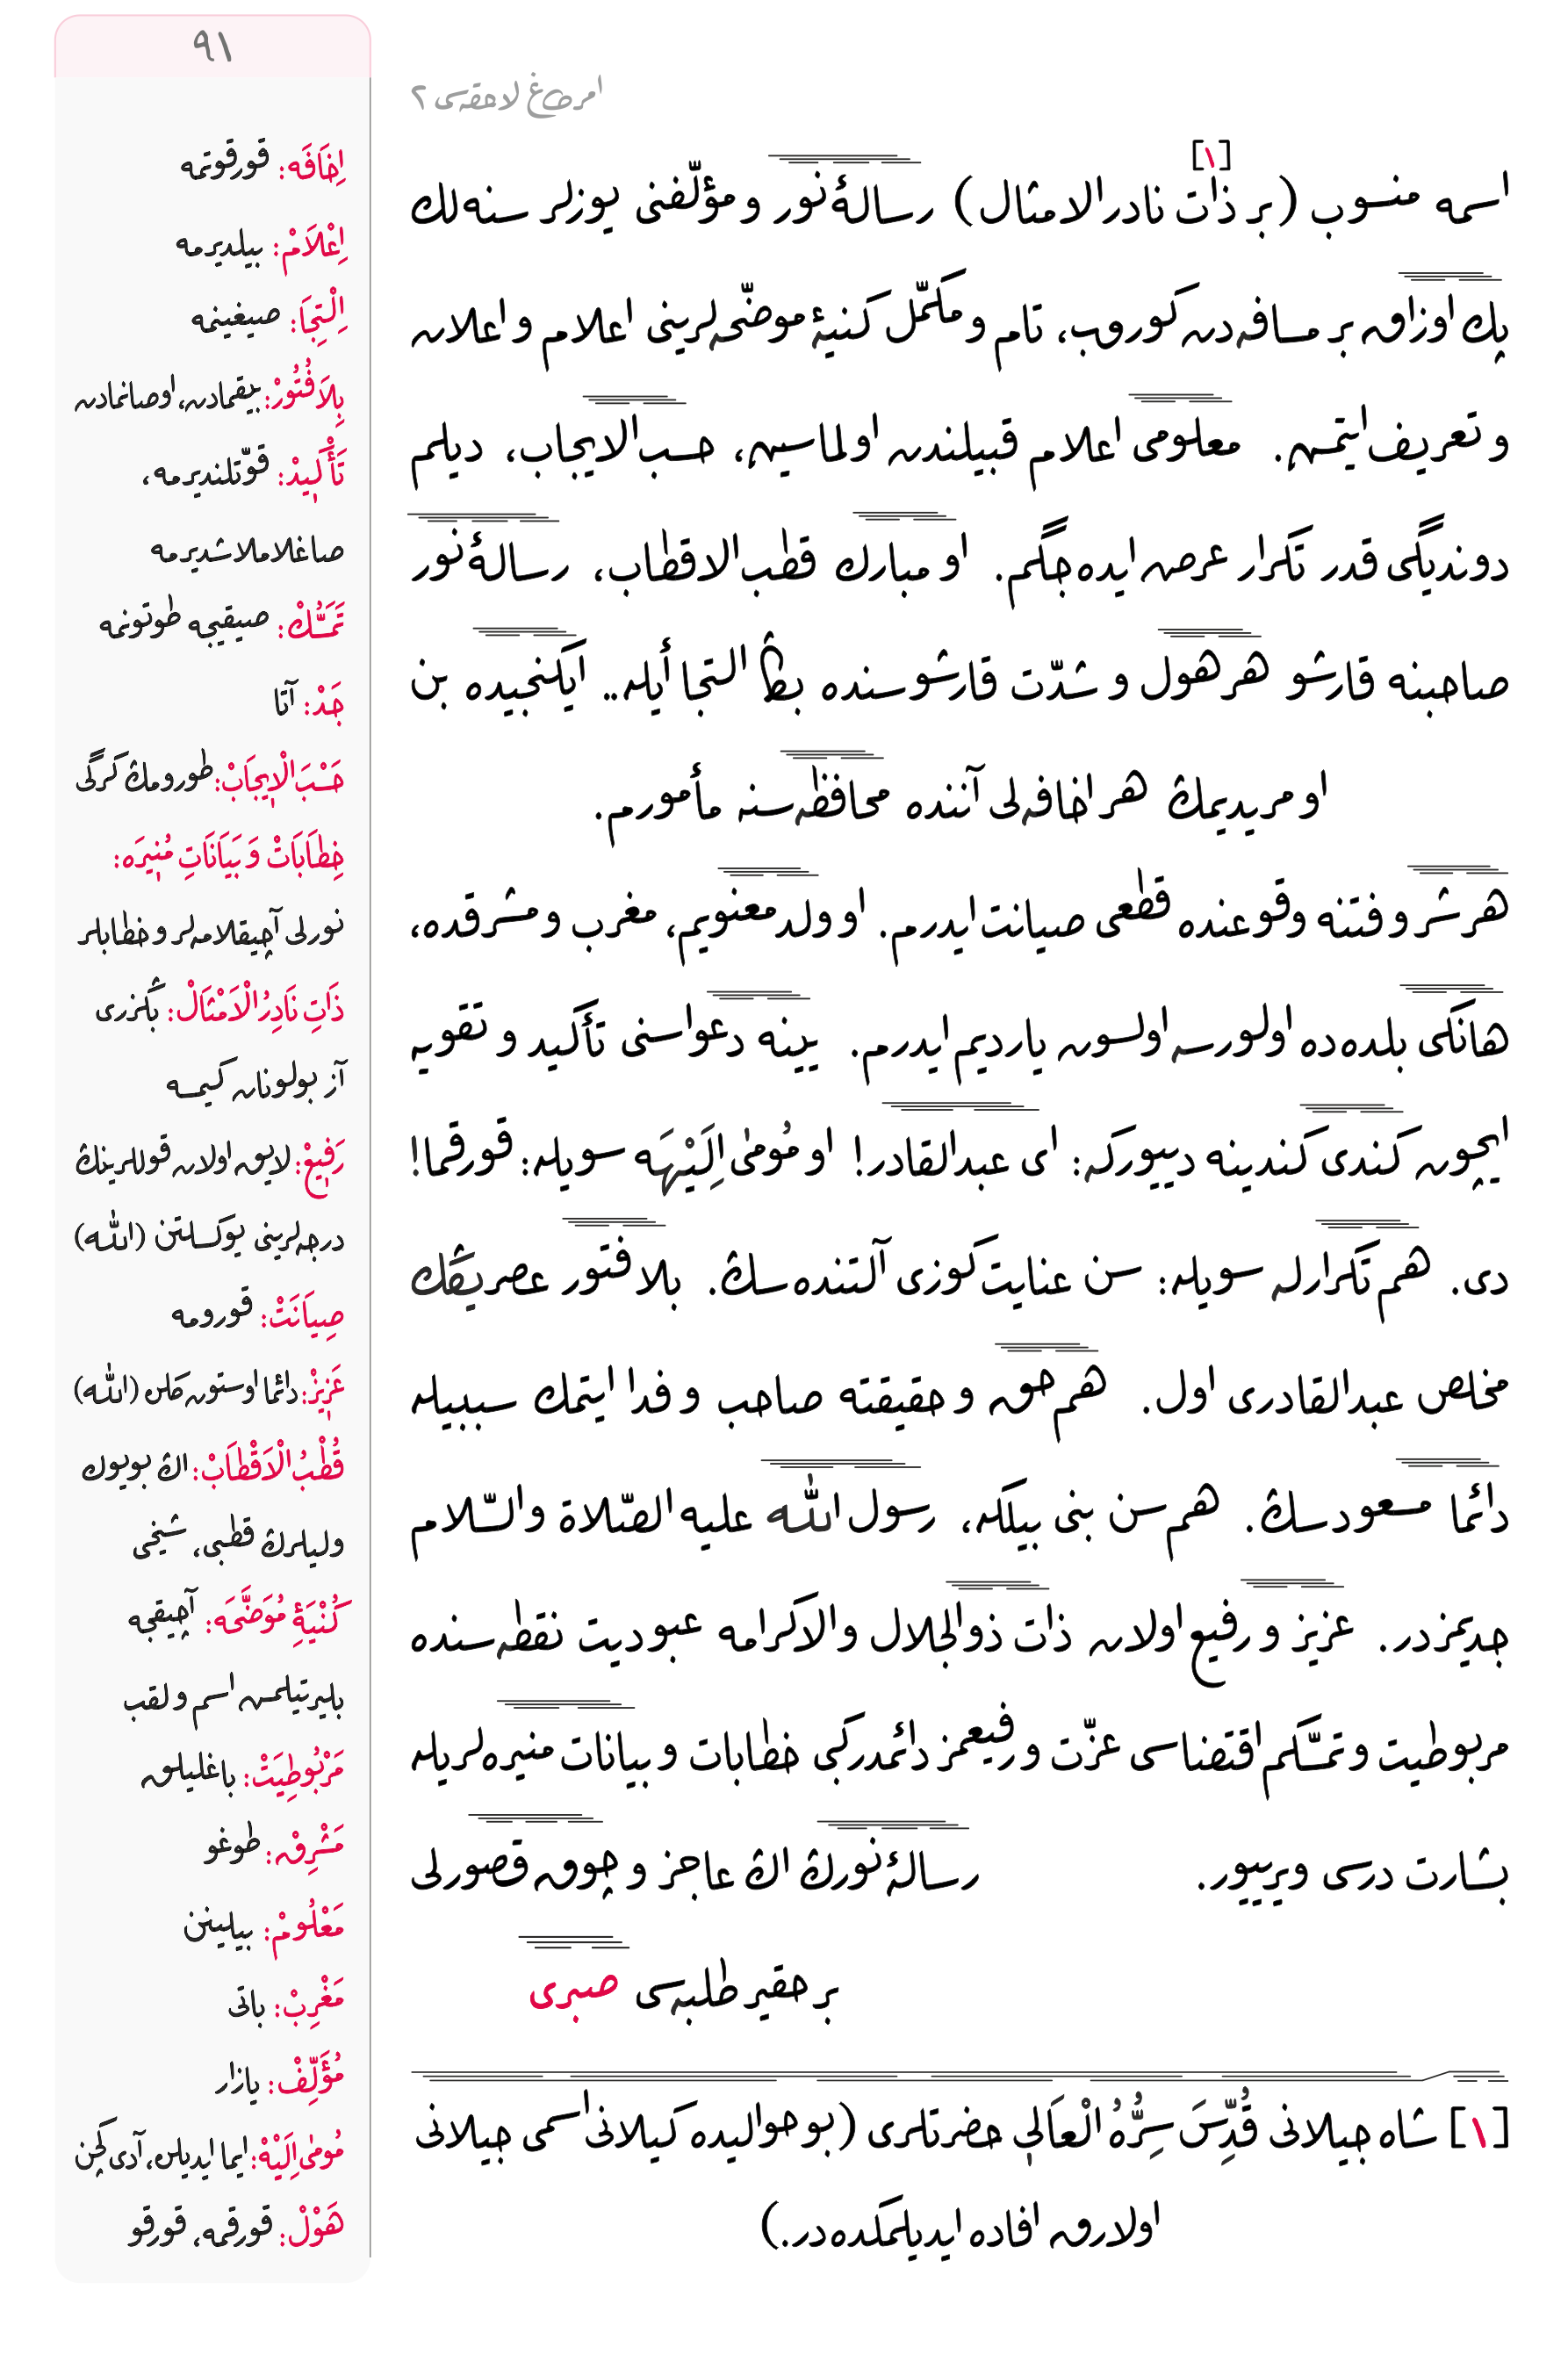 ٩١
امرطاغ لاحقه‌سی ٢
اسمه منسوب (بر ذات[١] نادر الامثال) رسالهٔ نور و مؤلّفنی یوزلر سنه‌لك
پك اوزاق بر مسافه‌دن كوروب، تام و مكمّل كنیهٔ موضّحه‌لرینی اعلام و اعلان
و تعریف ایتمش. معلومی اعلام قبیلندن اولماسین، حسب الایجاب، دیلم
دوندیگی قدر تكرار عرض ایده‌جگم. او مبارك قطب الاقطاب، رسالهٔ نور
صاحبنه قارشو هر هول و شدّت قارشوسنده بڭا التجا أیله.. ایكنجیده بن
او مریدیمڭ هر اخافه‌لی آننده محافظه‌سنه مأمورم.
هر شر و فتنه وقوعنده قطعی صیانت ایدرم. او ولد معنویم، مغرب و مشرقده،
هانكی بلده‌ده اولورسه اولسون یاردیم ایدرم. یینه دعواسنی تأكید و تقویه
ایچون كندی كندینه دییوركه: ای عبدالقادر! او مُومٰی اِلَیْهَه سویله: قورقما!
دی. هم تكرارله سویله: سن عنایت كوزی آلتنده‌سڭ. بلا فتور عصریڭڭ
مخلص عبدالقادری اول. هم حق و حقیقته صاحب و فدا ایتمك سببیله
دائما مسعودسڭ. هم سن بنی بیلكه، رسول الله علیه الصّلاة والسّلام
جدیمزدر. عزیز و رفیع اولان ذات ذوالجلال والاكرامه عبودیت نقطه‌سنده
مربوطیت و تمسّكم اقتضاسی عزّت و رفیعمز دائمدركبی خطابات و بیانات منیره‌لریله
بشارت درسی ویرییور. رسالهٔ نورڭ اڭ عاجز و چوق قصورلی
بر حقیر طلبه‌سی صبری
[١] شاه جیلانی قُدِّسَ سِرُّهُ الْعَالِي حضرتلری (بو حوالیده كیلانی اسمی جیلانی
اولارق افاده ایدیلمكده‌در.)
اِخَافَه: قورقوتمه
اِعْلَامْ: بیلدیرمه
اِلْتِجَا: صیغینمه
بِلَا فُتُورْ: بیقمادن، اوصانمادن
تَأْكِيدْ: قوّتلندیرمه،
صاغلاملاشدیرمه
تَمَسُّكْ: صیقیجه طوتونمه
جَدْ: آتا
حَسْبَ الْاِيجَابْ: طورومڭ كركی
خِطَابَاتْ وَ بَيَانَاتِ مُنِيرَه:
نورلی آچیقلامه‌لر و خطابلر
ذَاتِ نَادِرُ الْاَمْثَالْ: بڭزری
آز بولونان كیمسه
رَفِيعْ: لایق اولان قوللرینڭ
درجه‌لرینی یوكسلتن (الله)
صِيَانَتْ: قورومه
عَزِيزْ: دائما اوستون كلن (الله)
قُطْبُ الْاَقْطَابْ: اڭ بویوك
ولیلرڭ قطبی، شیخی
كُنْيَۀِ مُوَضَّحَه: آچیقجه
بلیرتیلمش اسم و لقب
مَرْبُوطِيَتْ: باغلیلق
مَشْرِقْ: طوغو
مَعْلُومْ: بیلینن
مَغْرِبْ: باتی
مُؤَلِّفْ: یازار
مُومٰی اِلَيْهْ: ایما ایدیلن، آدی كچن
هَوْلْ: قورقمه، قورقو